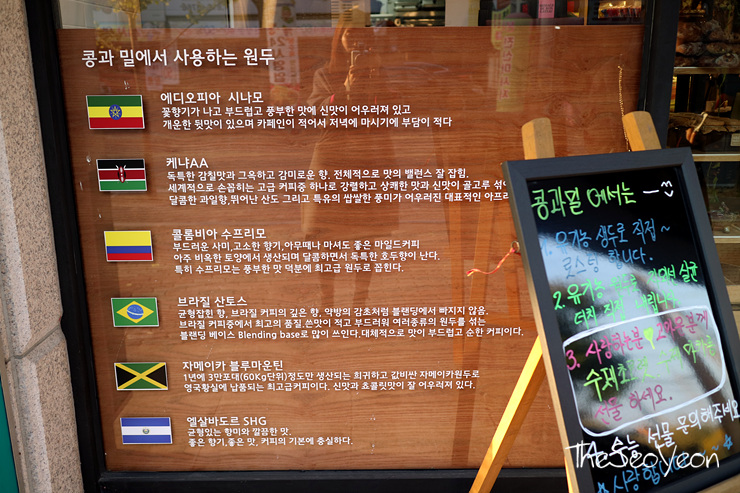 콩과 밀에서 사용하는 원두
에디오피아 시나모
꽃향기가 나고 부드럽고 풍부한 맛에 신맛이 어우러져 있고
개운한 뒷맛이 있으며 카페인이 적어서 저녁에 마시기에 부담이 적다
케냐AA
독특한 감칠맛과 그윽하고 감미로운 향. 전체적으로 맛의 밸런스 잘 잡힘.
세계적으로 손꼽히는 고급 커피중 하나로 강렬하고 상쾌한 맛과 신맛이 골고루 섞여
달콤한 과일향,뛰어난 산도 그리고 특유의 쌉쌀한 풍미가 어우러진 대표적인 아프리
콜롬비아 수프리모
부드러운 사미,고소한 향기,아무때나 마셔도 좋은 마일드커피
아주 비옥한 토양에서 생산되며 달콤하면서 독특한 호두향이 난다.
특히 수프리모는 풍부한 맛 덕분에 최고급 원두로 꼽힌다.
브라질 산토스
균형잡힌 향, 브라질 커피의 깊은 향, 약방의 감초처럼 블랜딩에서 빠지지 않음.
브라질 커피중에서 최고의 품질.쓴맛이 적고 부드러워 여러종류의 원두를 섞는
블랜딩 베이스 Blending base로 많이 쓰인다.대체적으로 맛이 부드럽고 순한 커피이다.
자메이카 블루마운틴
1년에 3만포대(60Kg단위)정도만 생산되는 희귀하고 값비싼 자메이카원두로
영국황실에 납품되는 최고급커피이다. 신맛과 쵸콜릿맛이 잘 어우러져 있다.
엘살바도르 SHG
균형있는 향미와 깔끔한 맛.
좋은 향기,좋은 맛, 커피의 기본에 충실하다.
콩과밀에서는
1. 유기농 생두로 직접~
로스팅 합니다.
2. 유기농 살균
더치 직접 내립니다
3. 사랑하는분♥고마운분께
수제초
선물 하세요.
수능 선물 문의해주세요
사랑합
THe SeoYeon